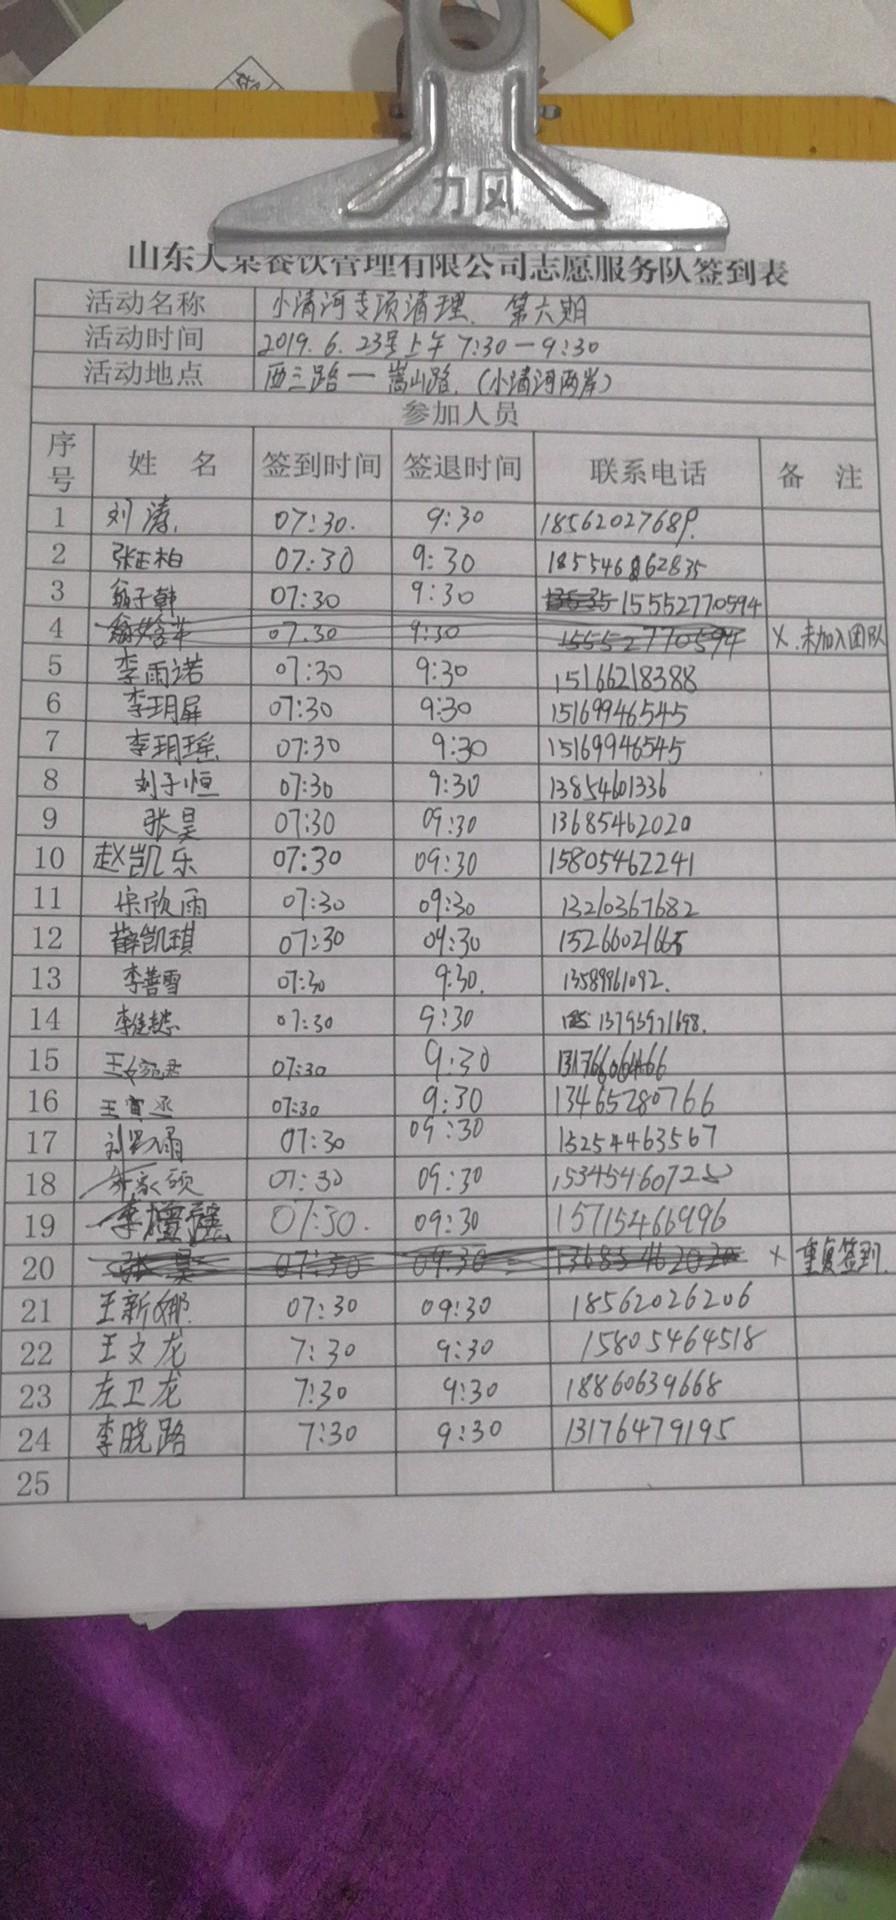 力风
山东大桌餐饮管理有限公司志愿服务队签到表
活动名称 小清河专项清理、第六期
活动时间 2019.6.23号上午7:30—9:30
活动地点 西三路—嵩山路.(小清河两岸)
参加人员
序号 姓名 签到时间 签退时间 联系电话 备注
1 刘涛. 07:30. 9:30 18562027689.
2 张正柏 07:30 9:30 18554662835
3 翁子韩 07:30 9:30 15552770594
4 07.30 9:30 15552770594 X.未加入团队
5 李雨诺 07:30 9:30 15166218388
6 李玥屏 07:30 9:30 15169946545
7 李玥瑶 07:30 9:30 15169946545
8 刘子恒 07:30 9:30 13854601336
9 张昊 07:30 09:30 13685462020
10 赵凯乐 07:30 09:30 15805462241
11 宋欣雨 07:30 09:30 13210367682
12 薛凯琪 07:30 09:30 15266021665
13 李善雪 07:30 9:30. 13589961092.
14 07:30 9:30 13795971698.
15 王婉君 07:30 9:30
16 王寅丞 07:30 9:30 13465280766
17 07:30 09:30 15254463567
18 07:30 09:30
19 07:30. 09:30 15715466996
20 张昊 07:30 09:30 13685462020 X 重复签到.
21 王新娜. 07:30 09:30 18562026206
22 王文龙 7:30 9:30 15805464518
23 左卫龙 7:30 9:30 18860639668
24 李晓路 7:30 9:30 13176479195
25